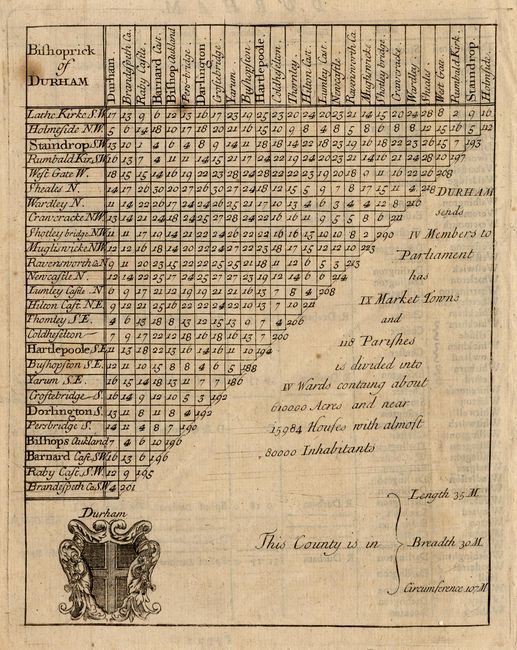 Bishoprick
of
DURHAM
Durham
Brandspeth Ca.
Raby Castle
Barnard Cast.
Bishop Aukland
Perc-bridge
Darlington
Croftebridge
Yarum
Byshopston
Hartlepoole
Coldhesleton
Thornley
Hilton Cast.
Lumley Cast.
Newcastle
Ravensworth Ca.
Mugliswicke
Shotley bridge
Crawcracke
Wardley
Sheales
West Gate
Rumbald Kirk
Staindrop
Holmside
Lathe Kirke S.W. 17 13 9 6 12 13 16 17 23 19 25 23 20 24 20 23 21 14 15 20 24 28 8 2 9 16
Holmeside N.W. 5 6 14 18 10 17 18 20 21 16 15 10 9 8 4 8 5 8 6 8 8 12 15 16 5 112
Staindrop S.W. 13 10 1 4 6 4 8 9 14 11 18 18 14 22 18 23 19 16 18 22 23 26 15 7 193
Rumbald Kir. S.W. 16 13 7 4 11 11 14 15 21 17 24 22 19 24 20 23 21 14 16 21 24 28 10 197
West Gate W. 18 15 15 14 16 19 22 23 28 24 28 22 22 22 19 20 18 9 11 16 22 26 208
Sheales N. 14 17 26 30 20 27 26 30 27 24 18 12 15 5 9 7 8 17 15 11 4 228
Wardley N. 11 14 22 26 17 24 24 26 25 21 17 10 13 4 6 3 4 4 12 8 216
Crawcracke N.W. 13 14 21 24 18 24 25 27 28 24 22 16 16 11 9 5 5 8 6 211
Shotley bridge N.W. 11 11 17 19 14 21 22 24 26 22 22 16 16 13 10 10 8 2 290
Mugliswicke N.W. 12 12 16 18 14 20 22 24 27 22 23 18 17 15 12 12 10 223
Ravensworth Ca. N. 9 11 20 23 15 22 22 25 25 21 18 11 12 6 5 3 213
Newcastle N. 12 14 22 25 17 24 25 27 27 23 19 12 14 6 6 214
Lumley Castle N. 6 9 17 21 12 19 19 21 21 16 13 7 8 4 208
Hilton Cast. N.E. 9 12 21 25 16 22 22 24 22 19 13 7 10 211
Thornley S.E. 4 6 13 18 8 13 12 15 13 9 7 4 206
Coldheselton 7 9 17 22 12 18 16 18 16 13 7 200
Hartlepoole S.E. 11 13 18 22 13 16 14 16 11 10 194
Byshopston S.E. 12 11 10 15 8 8 4 6 5 188
Yarum S.E. 16 15 14 18 13 11 7 7 186
Croftebridge S. 16 14 9 12 10 5 3 192
Dorlington S. 13 11 8 11 8 4 192
Percbridge S. 14 11 4 8 7 190
Bishops Aukland 7 4 6 10 196
Barnard Cast. S.W. 16 13 6 196
Raby Cast. S.W. 12 9 195
Brandespeth Ca. S.W. 4 201
DURHAM
sends
IV Members to
Parliament
has
IX Market Towns
and
118 Parishes
is divided into
IV Wards containg about
610000 Acres and near
15984 Houses with almost
80000 Inhabitants
Durham
This County is in
Length 35 M.
Breadth 30 M.
Circumference 107 M.